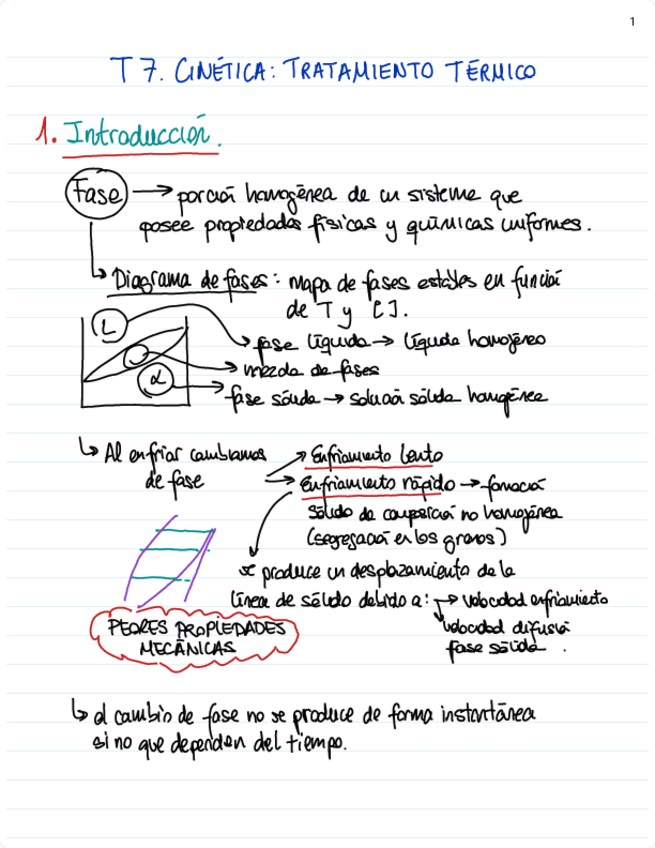 1
T 7. CINÉTICA: TRATAMIENTO TÉRMICO
1. Introducción.
Fase → porción homogénea de un sistema que
posee propiedades físicas y químicas uniformes.
↳ Diagrama de fases: mapa de fases estables en función
de T y [].
L
→ fase líquida → líquida homogéneo
→ mezcla de fases
α
→ fase sólida → solución sólida homogénea
↳ Al enfriar cambiamos
de fase
→ Enfriamiento lento
→ Enfriamiento rápido → formación
sólido de composición no homogénea
(segregación en los granos)
se produce un desplazamiento de la
línea de sólido debido a: → velocidad enfriamiento
velocidad difusión
fase sólida.
PEORES PROPIEDADES
MECÁNICAS
↳ el cambio de fase no se produce de forma instantánea
si no que dependen del tiempo.